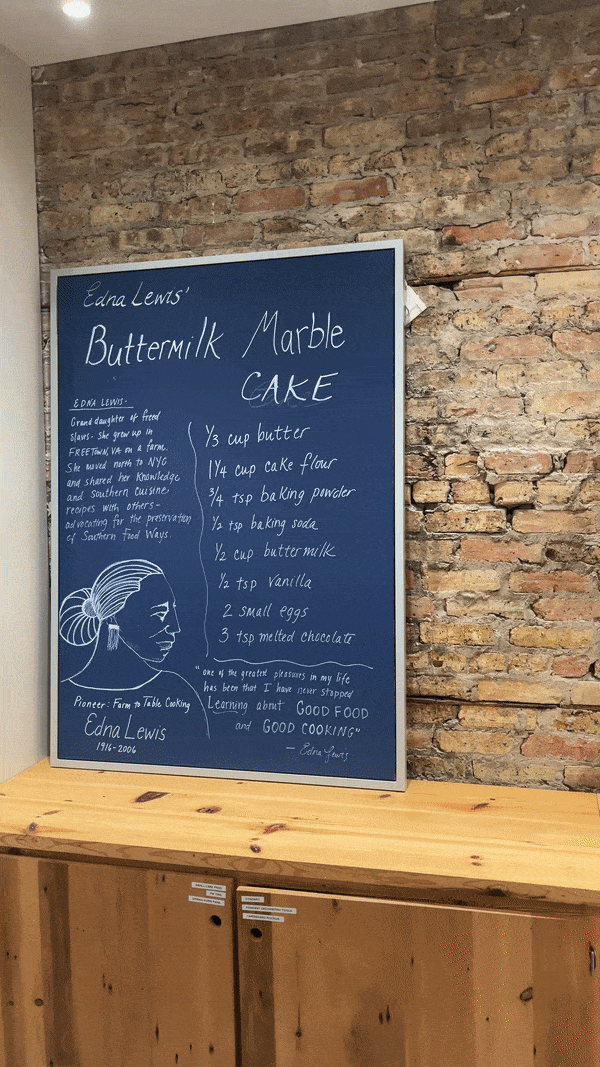 Edna Lewis'
Buttermilk Marble
CAKE
EDNA LEWIS-
Granddaughter of freed
slaves- she grew up in
FREETOWN, VA on a farm.
She moved north to NYC
and shared her knowledge
and Southern Cuisine
recipes with others-
advocating for the preservation
of Southern Food Ways.
Pioneer: Farm to Table Cooking
Edna Lewis
1916-2006
1/3 cup butter
1 1/4 cup cake flour
3/4 tsp baking powder
1/2 tsp baking soda
1/2 cup buttermilk
1/2 tsp vanilla
2 small eggs
3 tsp melted chocolate
"One of the greatest pleasures in my life
has been that I have never stopped
Learning about GOOD FOOD
and GOOD COOKING"
- Edna Lewis